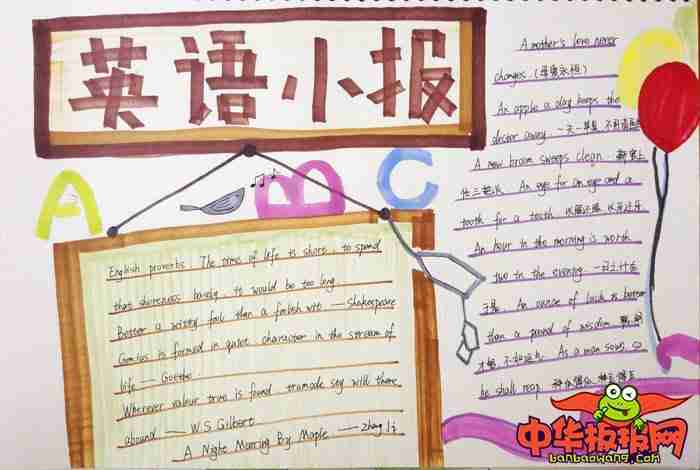 英语小报
A B C
English proverbs. The time of life is short, to spend
that shortness basely, it would be too long.
Better a witty fool than a foolish wit. — Shakespeare
Genius is formed in quiet, character in the stream of
life — Goethe.
Wherever valour true is found, true mode sty will there
abound — W.S Gilbert
A Night Mooring By Maple —
A mother's love never
changes (母爱永恒)
An apple a day keeps the
doctor away. 一天一苹果 不用请医生
A new broom sweeps clean. 新官上
任三把火 An eye for an eye and a
tooth for a tooth 以眼还眼 以牙还牙
An hour in the morning is worth
two in the evening 一日之计在
于晨. An ounce of luck is better
than a pound of wisdom
才 不如运气. As a man sows, so
he shall reap 种瓜得瓜 种豆得豆
中华板报网
banbaowang.com